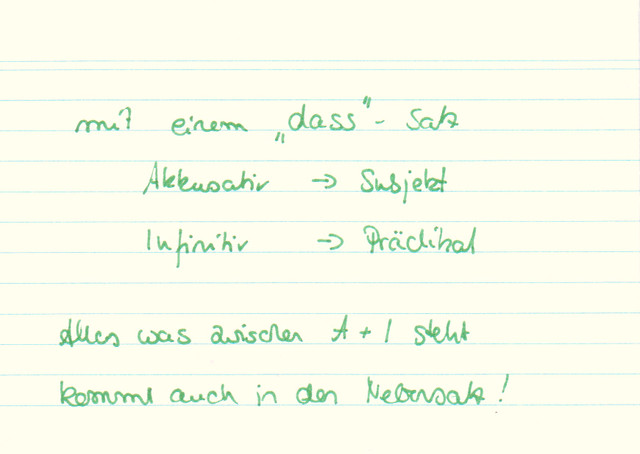 mit einem „dass"- Satz
Akkusativ → Subjekt
Infinitiv → Prädikat
Alles was zwischen A + I steht
kommt auch in den Nebensatz!